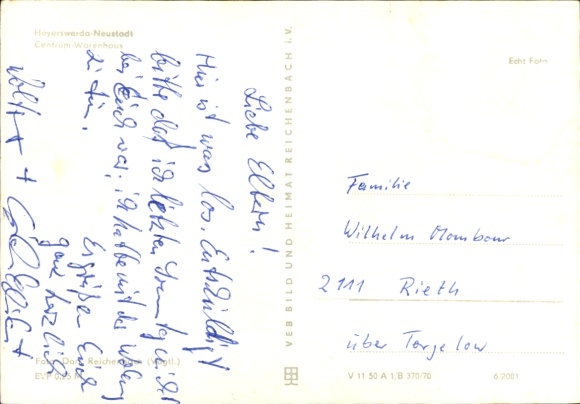 Hoyerswerda-Neustadt
Centrum-Warenhaus
Liebe Eltern!
Hier ist was los. Entschuldigt
bitte daß ich letzten Sonntag nicht
bei Euch war, ich hatte mit der Wohnung
zu tun.
Es grüßen Euch
ganz herzlich
Foto: Dorr, Reichenbach (Vogtl.)
EVP 0,25 M
VEB BILD UND HEIMAT REICHENBACH I. V.
Echt Foto
Familie
Wilhelm Mombour
2111 Rieth
über Torgelow
V 11 50 A 1/B 370/70
6/2001